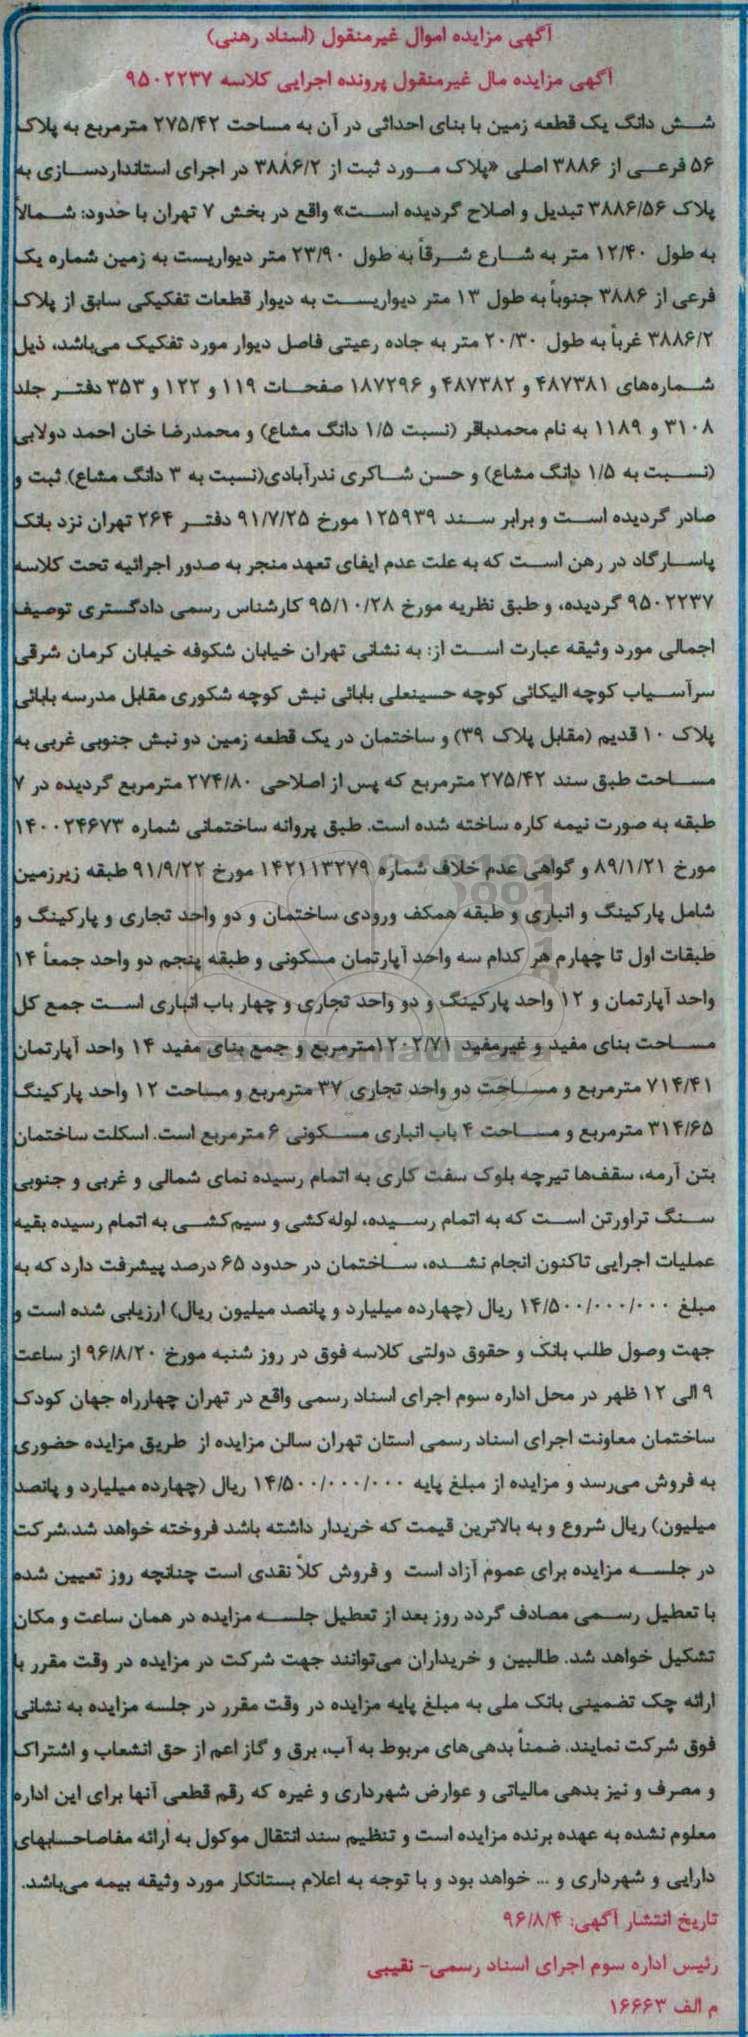 آگهی مزایده اموال غیرمنقول (اسناد رهنی)
آگهی مزایده مال غیرمنقول پرونده اجرایی کلاسه ۹۵۰۲۲۳۷
شش دانگ یک قطعه زمین با بنای احداثی در آن به مساحت ۲۷۵/۴۲ مترمربع به پلاک
۵۶ فرعی از ۳۸۸۶ اصلی «پلاک مورد ثبت از ۳۸۸۶/۲ در اجرای استانداردسازی به
پلاک ۳۸۸۶/۵۶ تبدیل و اصلاح گردیده است» واقع در بخش ۷ تهران با حدود: شمالاً
به طول ۱۲/۴۰ متر به شارع شرقاً به طول ۲۳/۹۰ متر دیواریست به زمین شماره یک
فرعی از ۳۸۸۶ جنوباً به طول ۱۳ متر دیواریست به دیوار قطعات تفکیکی سابق از پلاک
۳۸۸۶/۲ غرباً به طول ۲۰/۳۰ متر به جاده رعیتی فاصل دیوار مورد تفکیک می‌باشد، ذیل
شماره‌های ۴۸۷۳۸۱ و ۴۸۷۳۸۲ و ۱۸۷۲۹۶ صفحات ۱۱۹ و ۱۲۲ و ۳۵۳ دفتر جلد
۳۱۰۸ و ۱۱۸۹ به نام محمدباقر (نسبت ۱/۵ دانگ مشاع) و محمدرضا خان احمد دولابی
(نسبت به ۱/۵ دانگ مشاع) و حسن شاکری ندرآبادی(نسبت به ۳ دانگ مشاع) ثبت و
صادر گردیده است و برابر سند ۱۲۵۹۳۹ مورخ ۹۱/۷/۲۵ دفتر ۲۶۴ تهران نزد بانک
پاسارگاد در رهن است که به علت عدم ایفای تعهد منجر به صدور اجرائیه تحت کلاسه
۹۵۰۲۲۳۷ گردیده، و طبق نظریه مورخ ۹۵/۱۰/۲۸ کارشناس رسمی دادگستری توصیف
اجمالی مورد وثیقه عبارت است از: به نشانی تهران خیابان شکوفه خیابان کرمان شرقی
سرآسیاب کوچه الیکائی کوچه حسینعلی بابائی نبش کوچه شکوری مقابل مدرسه بابائی
پلاک ۱۰ قدیم (مقابل پلاک ۳۹) و ساختمان در یک قطعه زمین دو نبش جنوبی غربی به
مساحت طبق سند ۲۷۵/۴۲ مترمربع که پس از اصلاحی ۲۷۴/۸۰ مترمربع گردیده در ۷
طبقه به صورت نیمه کاره ساخته شده است. طبق پروانه ساختمانی شماره ۱۴۰۰۲۴۶۷۳
مورخ ۸۹/۱/۲۱ و گواهی عدم خلاف شماره ۱۴۲۱۱۳۲۷۹ مورخ ۹۱/۹/۲۲ طبقه زیرزمین
شامل پارکینگ و انباری و طبقه همکف ورودی ساختمان و دو واحد تجاری و پارکینگ و
طبقات اول تا چهارم هر کدام سه واحد آپارتمان مسکونی و طبقه پنجم دو واحد جمعاً ۱۴
واحد آپارتمان و ۱۲ واحد پارکینگ و دو واحد تجاری و چهار باب انباری است جمع کل
مساحت بنای مفید و غیرمفید ۱۲۰۲/۷۱مترمربع و جمع بنای مفید ۱۴ واحد آپارتمان
۷۱۴/۴۱ مترمربع و مساحت دو واحد تجاری ۳۷ مترمربع و مساحت ۱۲ واحد پارکینگ
۳۱۴/۶۵ مترمربع و مساحت ۴ باب انباری مسکونی ۶ مترمربع است. اسکلت ساختمان
بتن آرمه، سقف‌ها تیرچه بلوک سفت کاری به اتمام رسیده نمای شمالی و غربی و جنوبی
سنگ تراورتن است که به اتمام رسیده، لوله‌کشی و سیم‌کشی به اتمام رسیده بقیه
عملیات اجرایی تاکنون انجام نشده، ساختمان در حدود ۶۵ درصد پیشرفت دارد که به
مبلغ ۱۴/۵۰۰/۰۰۰/۰۰۰ ریال (چهارده میلیارد و پانصد میلیون ریال) ارزیابی شده است و
جهت وصول طلب بانک و حقوق دولتی کلاسه فوق در روز شنبه مورخ ۹۶/۸/۲۰ از ساعت
۹ الی ۱۲ ظهر در محل اداره سوم اجرای اسناد رسمی واقع در تهران چهارراه جهان کودک
ساختمان معاونت اجرای اسناد رسمی استان تهران سالن مزایده از طریق مزایده حضوری
به فروش می‌رسد و مزایده از مبلغ پایه ۱۴/۵۰۰/۰۰۰/۰۰۰ ریال (چهارده میلیارد و پانصد
میلیون) ریال شروع و به بالاترین قیمت که خریدار داشته باشد فروخته خواهد شد.شرکت
در جلسه مزایده برای عموم آزاد است و فروش کلاً نقدی است چنانچه روز تعیین شده
با تعطیل رسمی مصادف گردد روز بعد از تعطیل جلسه مزایده در همان ساعت و مکان
تشکیل خواهد شد. طالبین و خریداران می‌توانند جهت شرکت در مزایده در وقت مقرر با
ارائه چک تضمینی بانک ملی به مبلغ پایه مزایده در وقت مقرر در جلسه مزایده به نشانی
فوق شرکت نمایند. ضمناً بدهی‌های مربوط به آب، برق و گاز اعم از حق انشعاب و اشتراک
و مصرف و نیز بدهی مالیاتی و عوارض شهرداری و غیره که رقم قطعی آنها برای این اداره
معلوم نشده به عهده برنده مزایده است و تنظیم سند انتقال موکول به ارائه مفاصاحسابهای
دارایی و شهرداری و ... خواهد بود و با توجه به اعلام بستانکار مورد وثیقه بیمه می‌باشد.
تاریخ انتشار آگهی: ۹۶/۸/۴
رئیس اداره سوم اجرای اسناد رسمی- نقیبی
م الف ۱۶۶۶۳